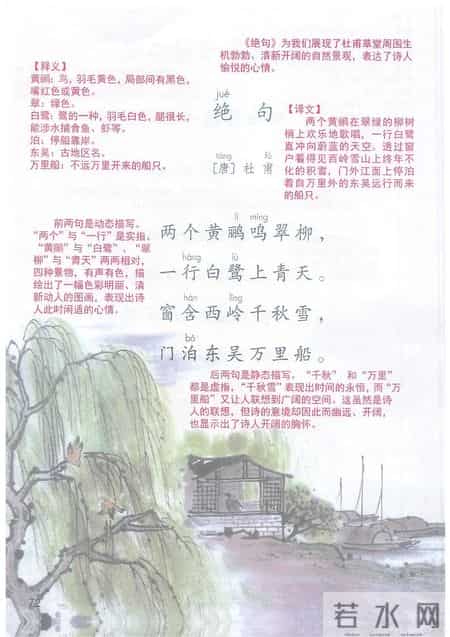 《绝句》为我们展现了杜甫草堂周围生
机勃勃、清新开阔的自然景观，表达了诗人
愉悦的心情。
【释义】
黄鹂：鸟，羽毛黄色，局部间有黑色，
嘴红色或黄色。
翠：绿色。
白鹭：鹭的一种，羽毛白色，腿很长，
能涉水捕食鱼、虾等。
泊：停船靠岸。
东吴：古地区名。
万里船：不远万里开来的船只。
jué
绝句
táng fǔ
[唐] 杜甫
【译文】
两个黄鹂在翠绿的柳树
梢上欢乐地歌唱，一行白鹭
直冲向蔚蓝的天空。透过窗
户看得见西岭雪山上终年不
化的积雪，门外江面上停泊
着自万里外的东吴远行而来
的船只。
前两句是动态描写。
“两个”与“一行”是实指，
“黄鹂”与“白鹭”、“翠
柳”与“青天”两两相对，
四种景物，有声有色，描
绘出了一幅色彩明丽、清
新动人的图画，表现出诗
人此时闲适的心情。
lí míng
两个黄鹂鸣翠柳，
háng lù
一行白鹭上青天。
hán lǐng
窗含西岭千秋雪，
bó
门泊东吴万里船。
后两句是静态描写。“千秋” 和“万里”
都是虚指，“千秋雪”表现出时间的永恒，而“万
里船”又让人联想到广阔的空间。这虽然是诗
人的联想，但诗的意境却因此而幽远、开阔，
也显示出了诗人开阔的胸怀。
72
若水网